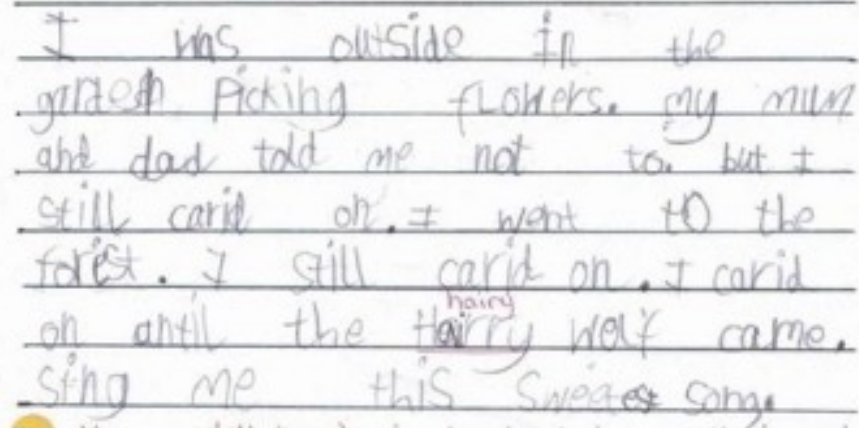 I was outside in the
garden Picking flowers. my mum
and dad told me not to. but I
still carid on. I went to the
forist. I still carid on. I carid
hairy
on antil the Hairry wolf came.
sing me this Sweatest song.